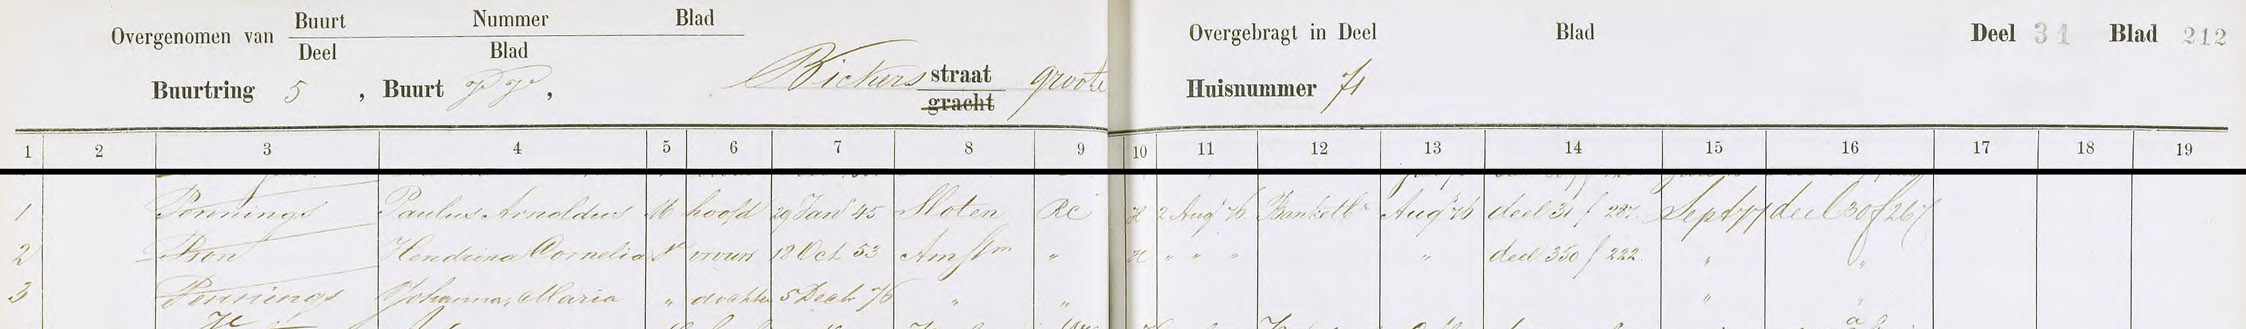 Overgenomen van Buurt Nummer Blad
Deel Blad
Overgebragt in Deel Blad Deel 31 Blad 212
Buurtring 5, Buurt PP, Bickers straat groote Huisnummer 71
gracht
1 2 3 4 5 6 7 8 9 10 11 12 13 14 15 16 17 18 19
1 Pennings Paulus Arnoldus M hoofd 29 Jan 45 Sloten RC H 2 Aug 76 Banketb Aug 76 deel 31 f 287 Sept 77 deel 30 f 267
2 Bron Hendrina Cornelia V vrouw 18 Oct 53 Amstm " H " " " " deel 350 f 222 " "
3 Pennings Johanna Maria " dochter 5 Dec 76 " " " "